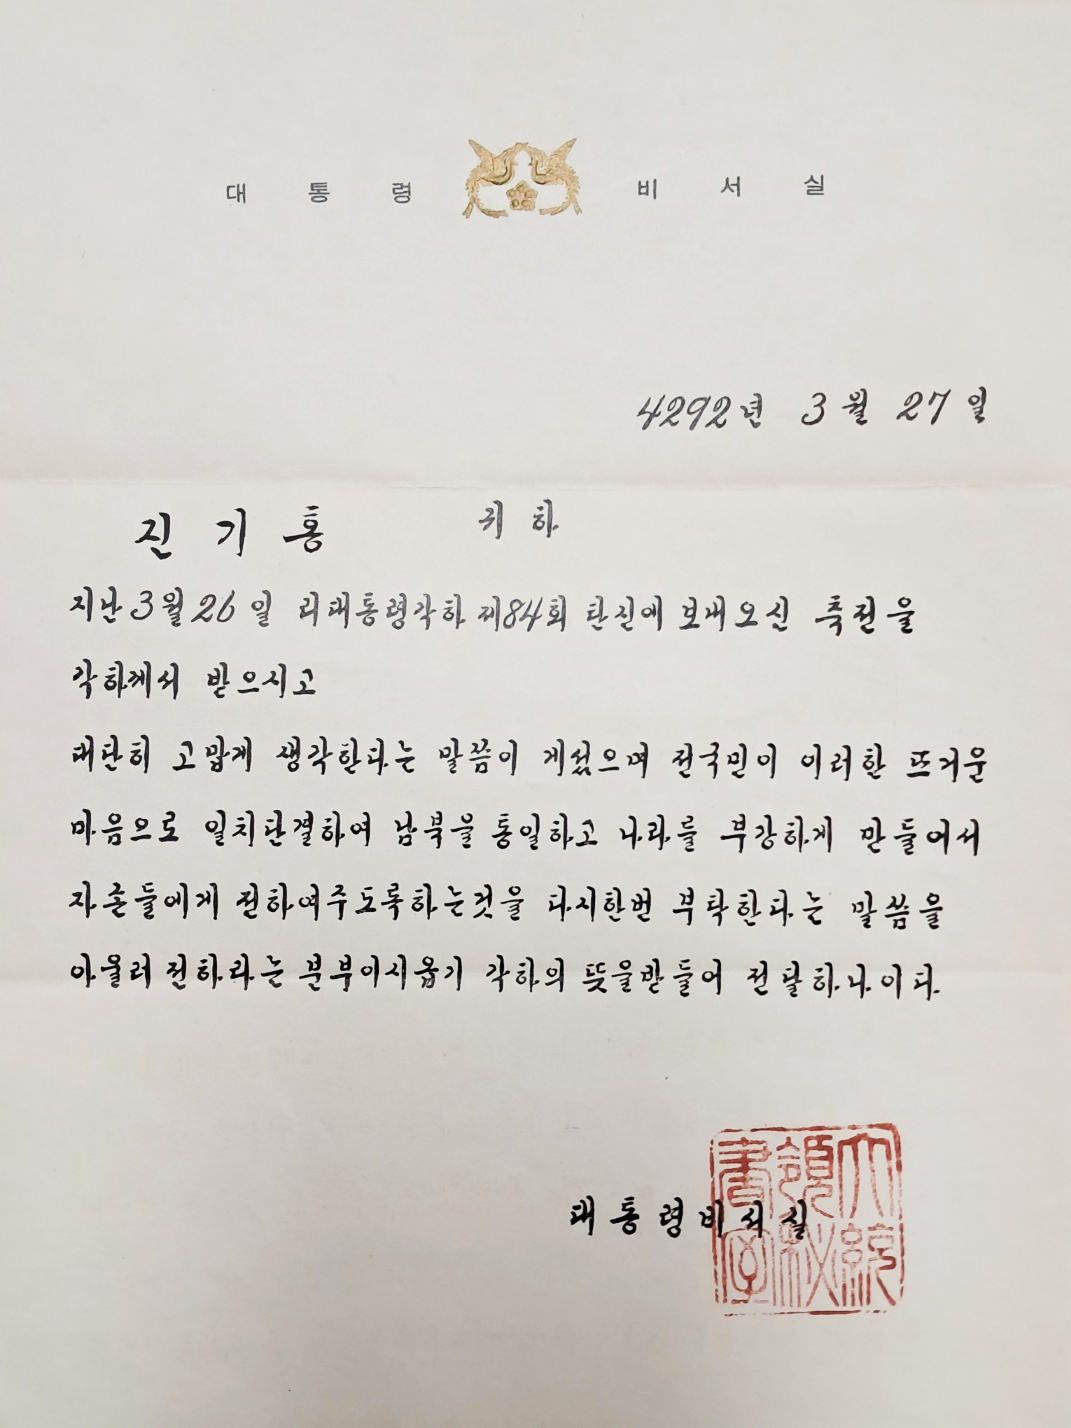 대통령 비서실
4292년 3월 27일
진기홍 귀하
지난 3월 26일 리대통령각하 제84회 탄신에 보내오신 축전을
각하께서 받으시고
대단히 고맙게 생각한다는 말씀이 게섰으며 전국민이 이러한 뜨거운
마음으로 일치단결하여 남북을 통일하고 나라를 부강하게 만들어서
자손들에게 전하여주도록하는것을 다시한번 부탁한다는 말씀을
아울러 전하라는 분부이시옵기 각하의 뜻을받들어 전달하나이다.
대통령비서실
大統領秘書室